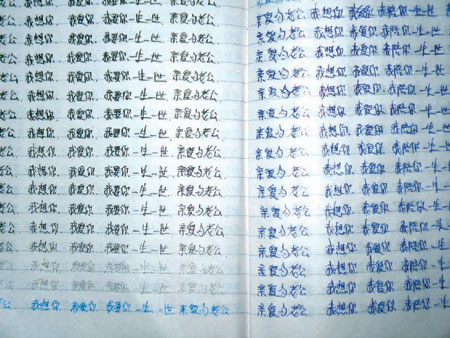 公 我想你 我爱你 我爱你一生一世 亲爱的老公
公 我想你 我爱你 我爱你一生一世 亲爱的老公
公 我想你 我爱你 我爱你一生一世 亲爱的老公
公 我想你 我爱你 我爱你一生一世 亲爱的老公
公 我想你 我爱你 我爱你一生一世 亲爱的老公
公 我想你 我爱你 我爱你一生一世 亲爱的老公
老公 我想你 我爱你 我爱你一生一世 亲爱的老公
老公 我想你 我爱你 我爱你一生一世 亲爱的老公
老公 我想你 我爱你 我爱你一生一世 亲爱的老公
老公 我想你 我爱你 我爱你一生一世 亲爱的老公
老公 我想你 我爱你 我爱你一生一世 亲爱的老公
老公 我想你 我爱你 我爱你一生一世 亲爱的老公
老公 我想你 我爱你 我爱你一生一世 亲爱的老公
老公 我想你 我爱你 我爱你一生一世 亲爱的老公
老公 我想你 我爱你 我爱你一生一世 亲爱的老公
公 我想你 我爱你 我爱你一生一世 亲爱的老公
亲爱的老公 我想你 我爱你 我陪你一生一世
亲爱的老公 我想你 我爱你 我陪你一生一世
亲爱的老公 我想你 我爱你 我陪你一生一世
亲爱的老公 我想你 我爱你 我陪你一生一世
亲爱的老公 我想你 我爱你 我陪你一生一世
亲爱的老公 我想你 我爱你 我陪你一生一世
亲爱的老公 我想你 我爱你 我陪你一生一
亲爱的老公 我想你 我爱你 我陪你一生一
亲爱的老公 我想你 我爱你 我陪你一生一
亲爱的老公 我想你 我爱你 我陪你一生一
亲爱的老公 我想你 我爱你 我陪你一生一
亲爱的老公 我想你 我爱你 我陪你一生一
亲爱的老公 我想你 我爱你 我陪你一生一
亲爱的老公 我想你 我爱你 我陪你一生一
亲爱的老公 我想你 我爱你 我陪你一生一
亲爱的老公 我想你 我爱你 我陪你一生一
亲爱的老公 我想你 我爱你 我陪你一生一